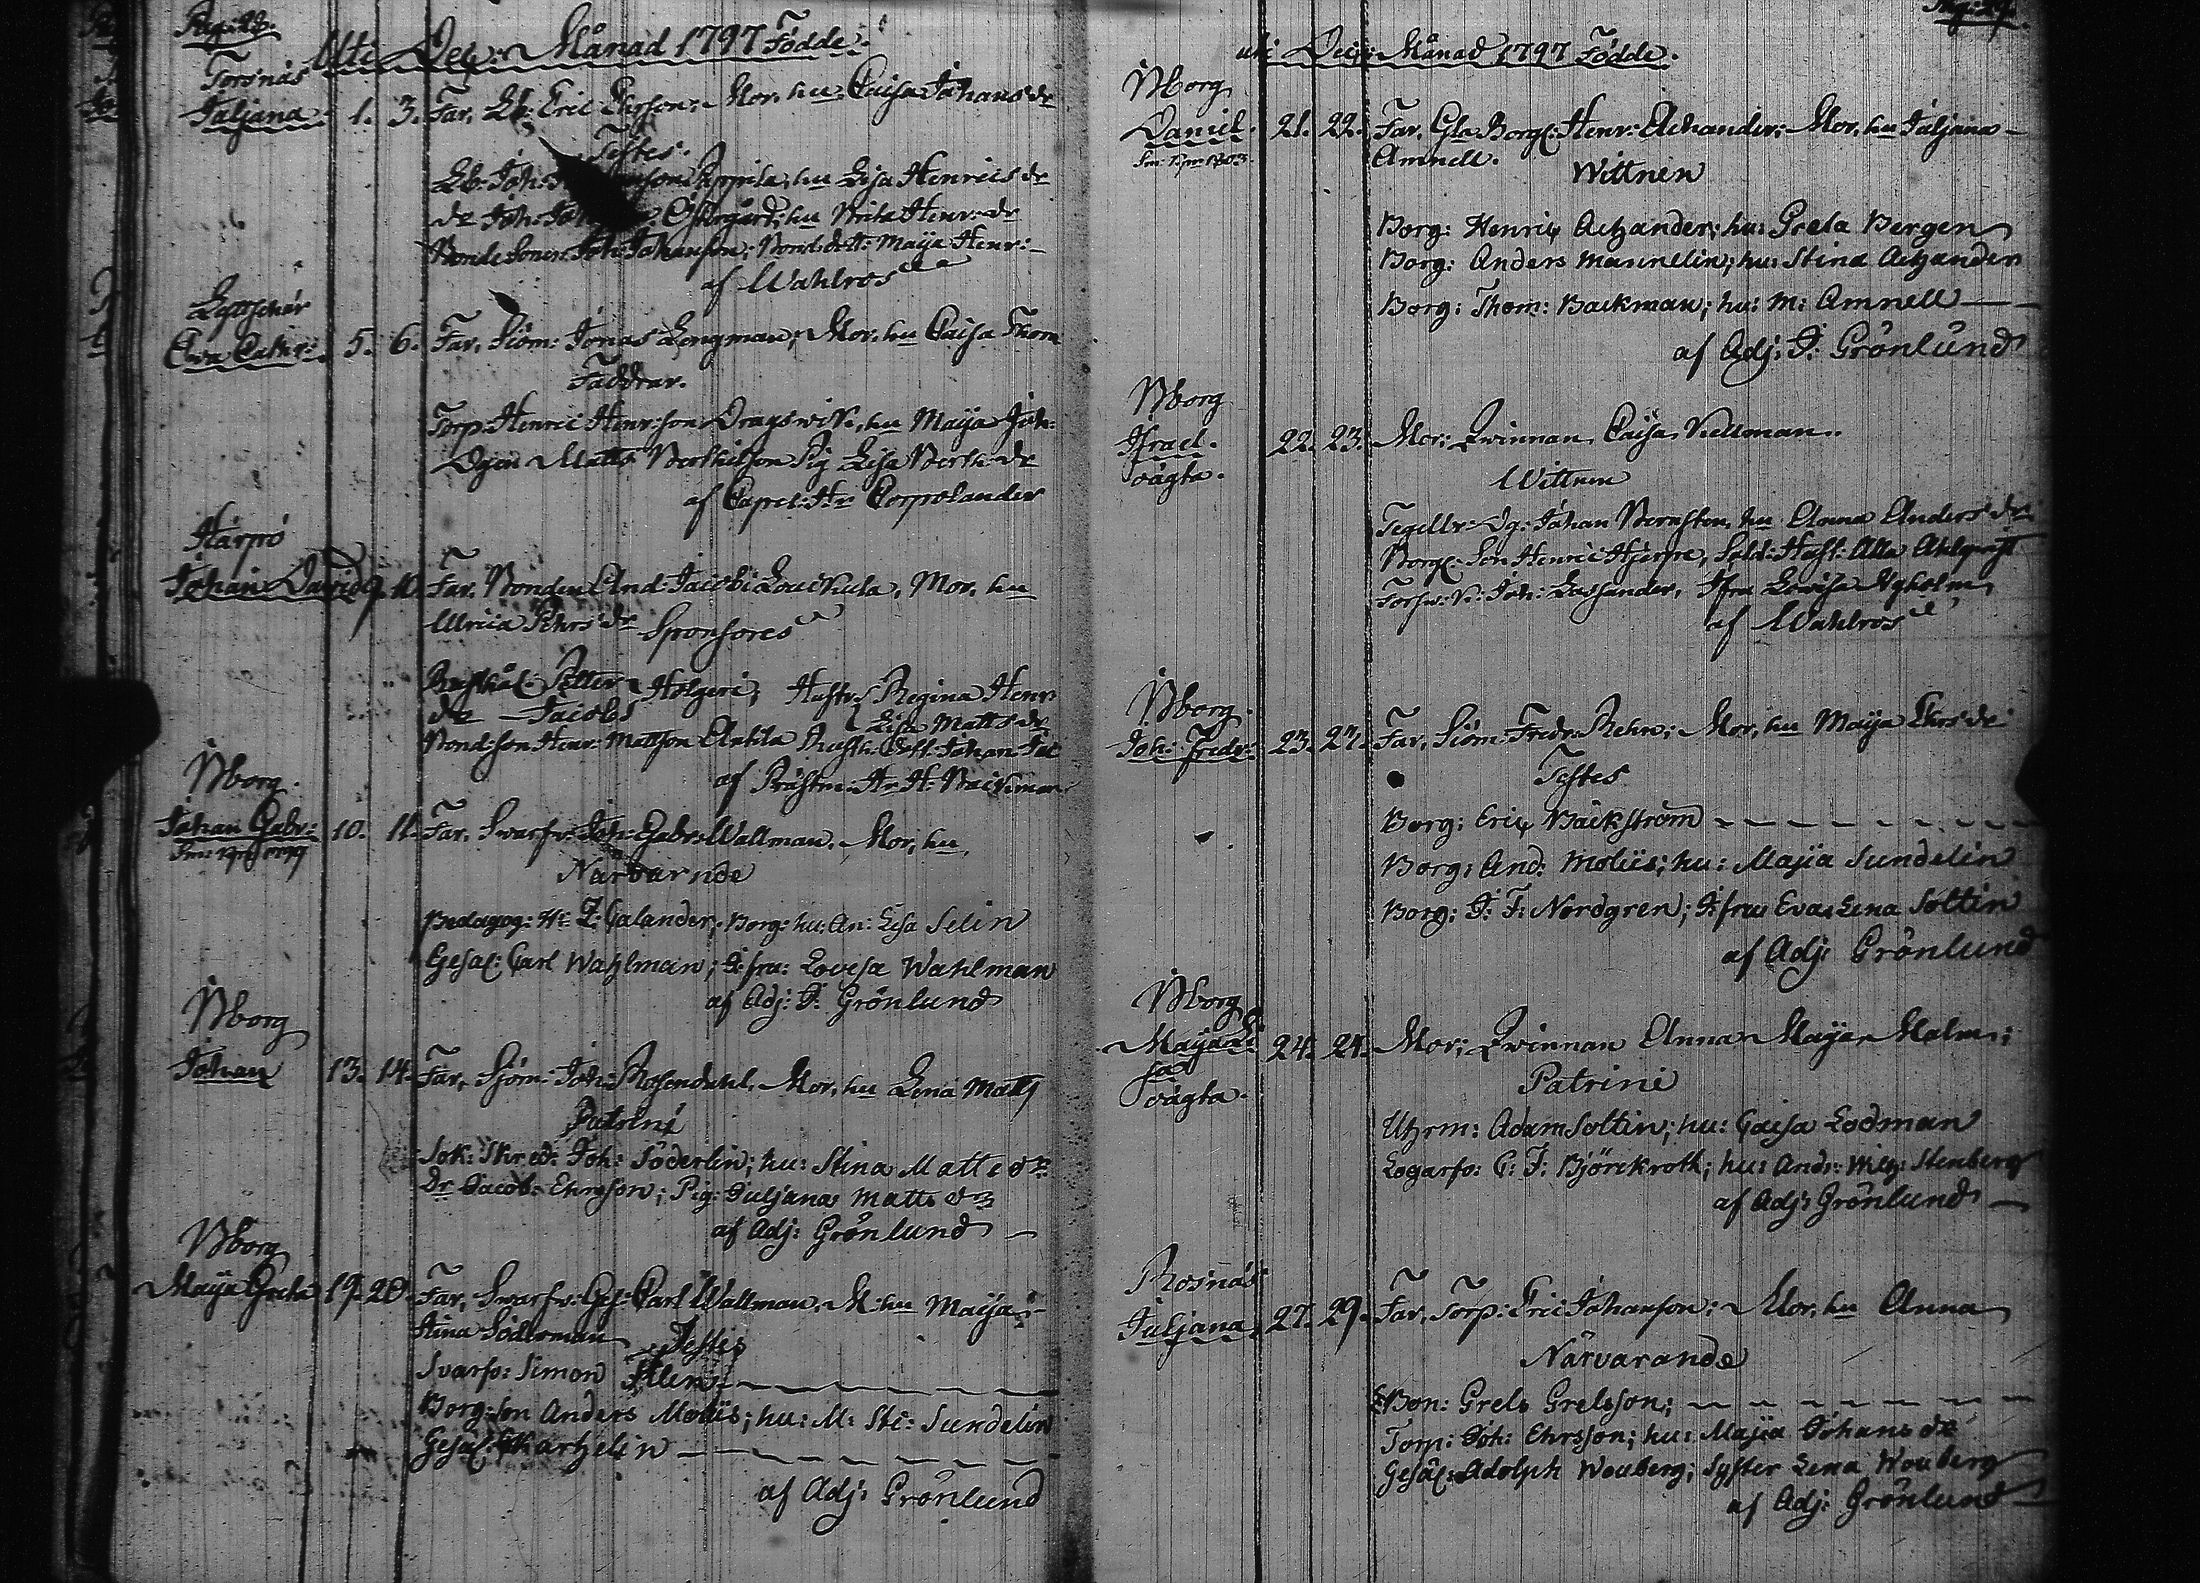 Pag: 28.
Uti Dec: Månad 1797 Födde.
Torsnäs
Juljana. 1. 3. Far, Lb: Eric Ehrson; Mor, hu Caisa Johans dr
Testes.
Lb: Joh: hu Lisa Henrics dr
do Joh: hu Brita Henr: dr
Bonde Sonen Joh: Johanson; Bond: dott: Maija Henr:
af Wahlroos
Ewa Cathr: 5. 6. Far, Siöm: Jonas Longman; Mor, hu Caisa Thom
Faddrar.
Torp: Henric Henr:son Dragswik, hu Maija Joh:
Dgen Matts Berthilson Pig Lisa Berth: dr
af Capel: Hr Corpolander
Harpö
Johan David 9. 10. Far, Bonden And: Jacobs Louckula, Mor, hu
Ulrica Pehrs dr Sponsores
Petter Holgeri; Hustr: Regina Henr:
dr Jacobs Lisa Matts dr
Bond:son Henr: Mattson Anttila Johan Jac
af Hr H: Backman
Bborg.
Johan Gabr: 10. 11. Far, Swarfw: Joh: Gabr: Wallman, Mor, hu
Närvarnde
Pedagog: Hr Z: Galander; Borg: hu: An: Lisa Selin
Gesäl: Carl Wahlman; J:fru: Lovisa Wahlman
af Adj: J: Grönlund
Bborg
Johan 13. 14. Far, Sjöm: Joh: Rosendahl, Mor, hu Lena Matts
Patrini
Sok: Skred: Joh: Söderlin; hu: Stina Matts dr
Dr Jacob: Ehrsson; Pig: Juljana Matts dr
af Adj: Grönlund
Bborg
Maija Greta 19. 20. Far, Swarfw: Ges: Carl Wallman, M: hu Maija
Stina Söderman Testes
Svarfv: Simon Alen
Borg:son Anders Moliis; hu: M: Sti: Sundelin
Gesäl:
af Adj: Grönlund
uti Dec: Månad 1797 Födde.
Bborg
Daniel. 21. 22. Far, Borg: Henr: Achander; Mor, hu Juljana
Amnell.
Wittnen
Borg: Henric Achander; hu: Greta Bergen
Borg: Anders Mannelin; hu: Stina Achander
Borg: Thom: Backman; hu: M: Amnell
af Adj: J: Grönlund
Bborg
Israel. 22. 23. Mor: Qwinnan Caisa Kullman
oägta.
Wittnen
Johan Bernsten, hu Anna Anders dr
Borg: Son Henric Hjerpe, Sold: Hust: Ulla Ahlqvist
Joh: Lassander, Jfru Lovisa Nyholm
af Wahlroos
Bborg.
Joh: Fredr: 23. 27. Far, Siöm: Fredr: Rehn; Mor, hu Maija Ehrs dr
Testes
Borg: Eric Bäckström
Borg: And: Moliis; hu: Majia Sundelin
Borg: J: F: Nordgren; J:fru Eva Lena Soltin
af Adj: Grönlund
Bborg
Maija Li
sa 24. 24. Mor; Qwinnan Anna Maija Malm;
oägta.
Patrini
Uhrm: Adam Soltin; hu: Caisa Lodman
Logarfv: C: J: Björckroth; hu: Andr: Wilh: Stenberg
af Adj: Grönlund
Rosnäs
Juljana, 27. 29. Far, Torp: Eric Johanson; Mor, hu Anna
Närvarande
Bon: Grels Grelsson;
Torp: Joh: Ehrsson; hu: Majia Johans dr
Gesäl: Adolph Wouberg; Syster Lena Wouberg
af Adj: Grönlund